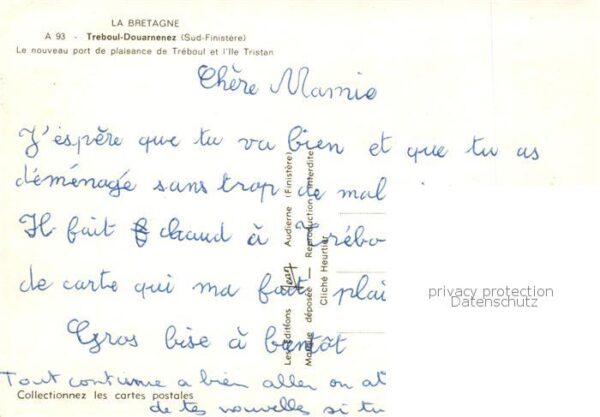 LA BRETAGNE
A 93 - Treboul-Douarnenez (Sud-Finistère)
Le nouveau port de plaisance de Tréboul et l'Ile Tristan
Chère Mamie
J'espère que tu va bien et que tu as
déménagé sans trop de mal
Il fait chaud à Trébo
de carte qui ma fait plai
Gros bise à bientôt
Tout continue a bien aller on at
de tes nouvelles si tu
Collectionnez les cartes postales
Les Editions Jean Audierne (Finistère)
Marque déposée — Reproduction interdite
Cliché Heurtier
privacy protection
Datenschutz